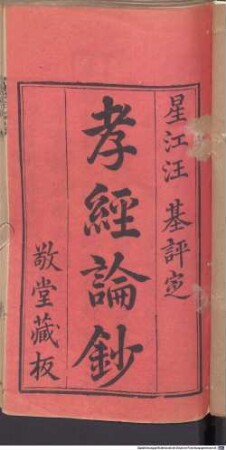 星江汪 基評定
孝經論鈔
敬堂藏板